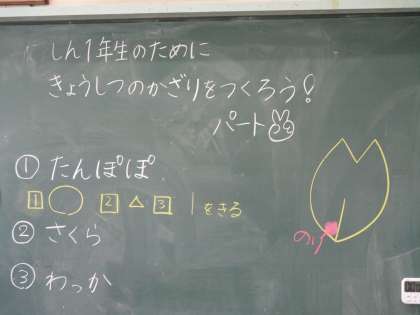 しん1年生のために
きょうしつのかざりをつくろう!
パート
① たんぽぽ
1 ○ 2 △ 3 | をきる
② さくら
のり
③ わっか